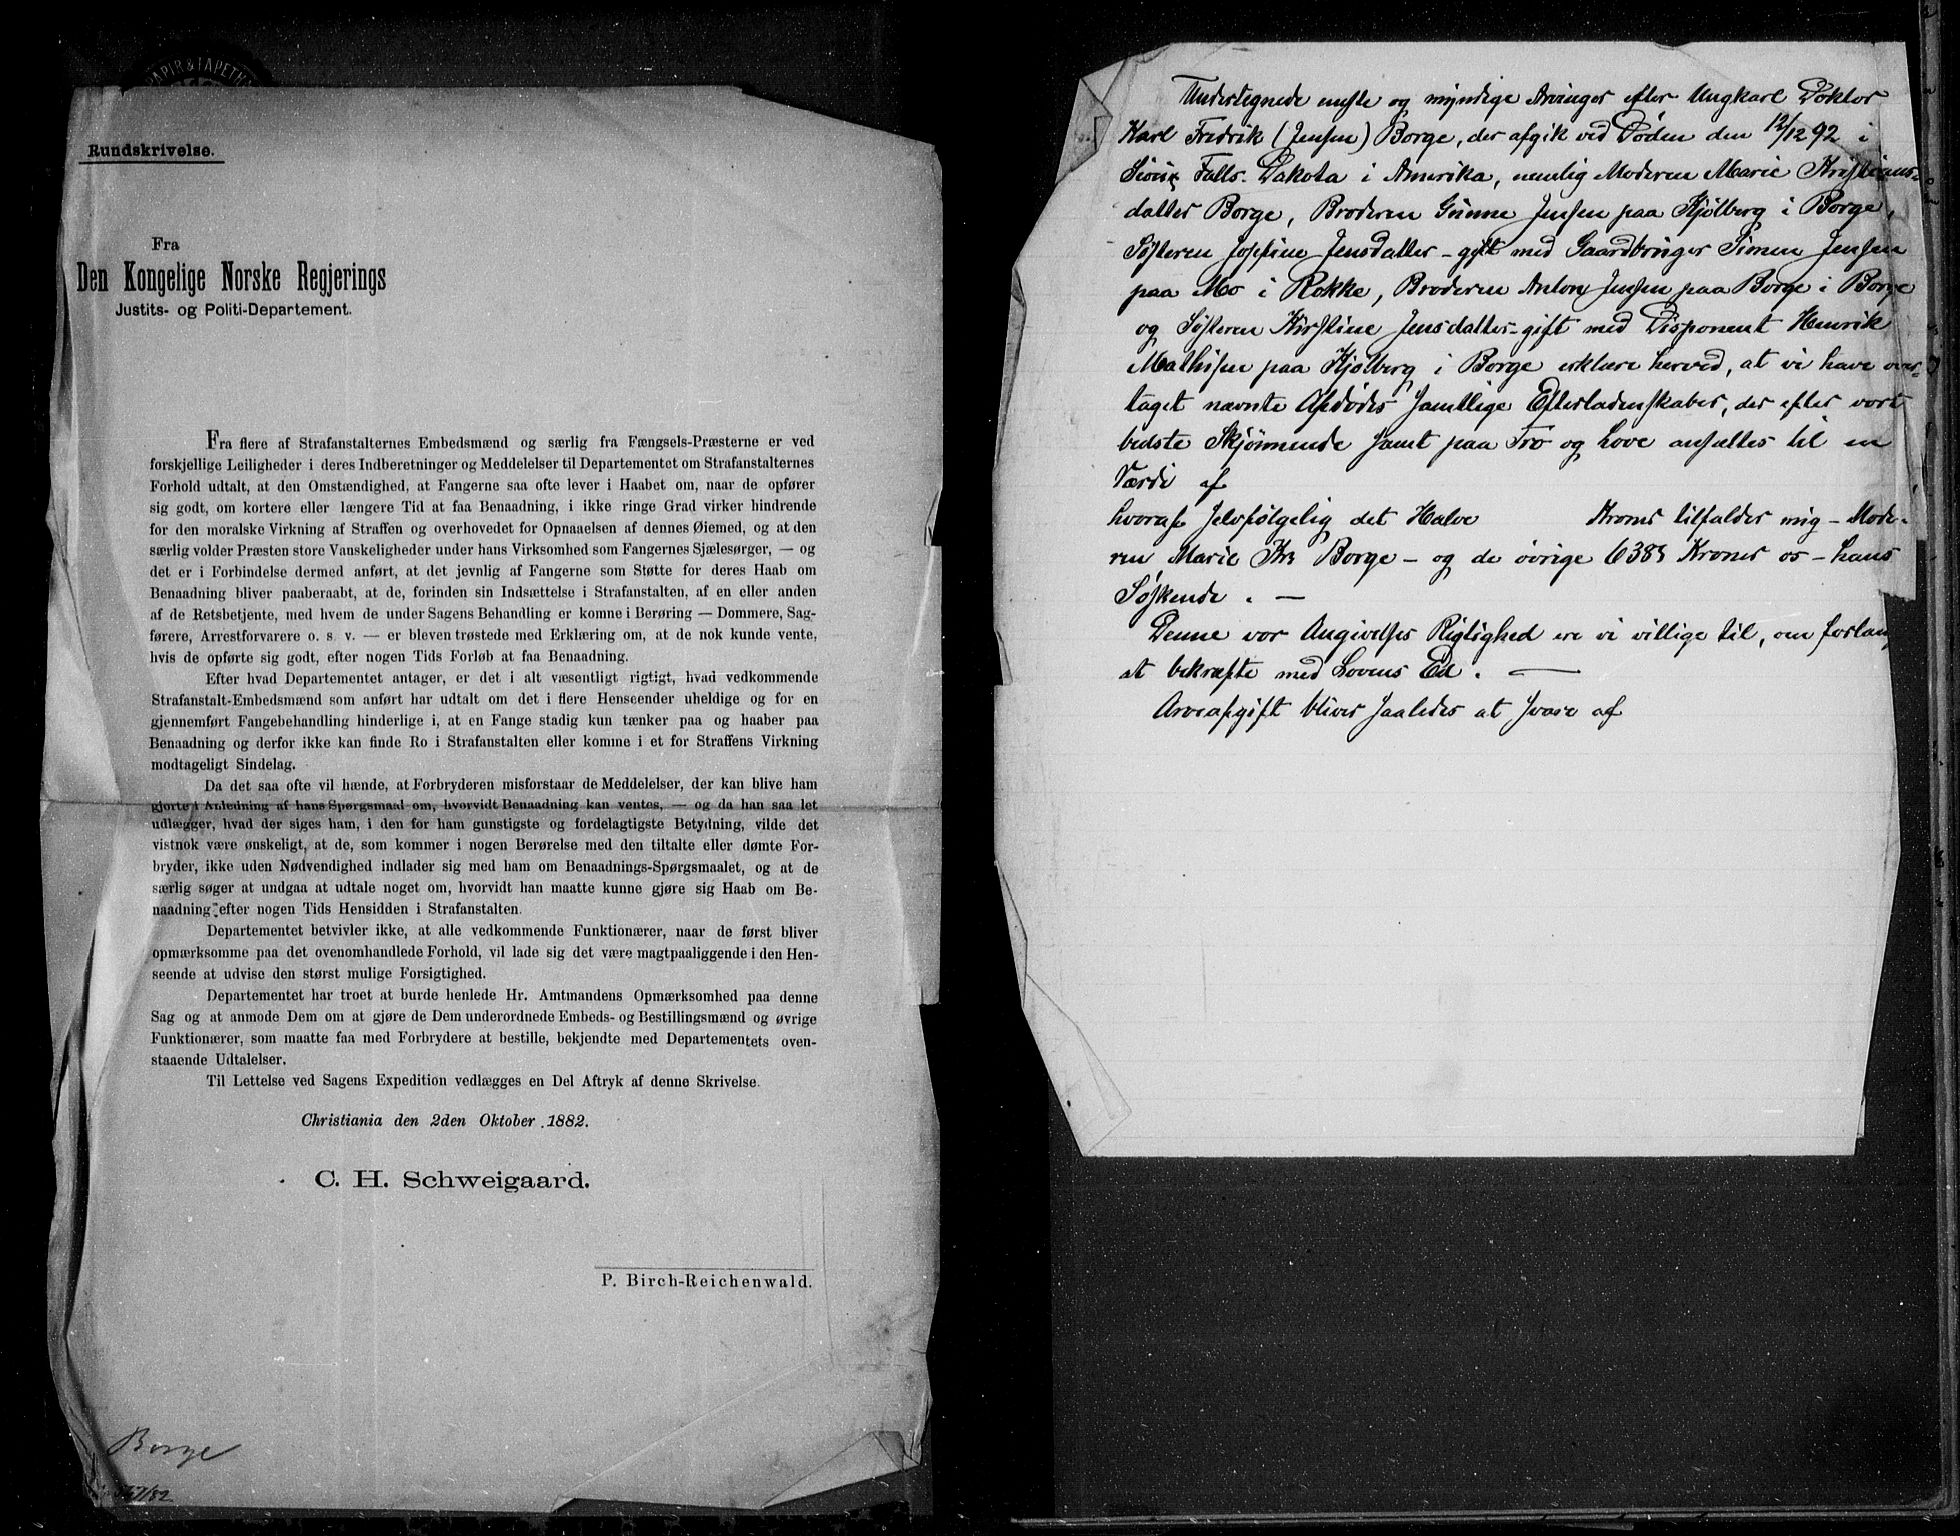 PAPIR & TAPETH
Rundskrivelse.
Fra
Den Kongelige Norske Regjerings
Justits- og Politi-Departement.
Fra flere af Strafanstalternes Embedsmænd og særlig fra Fængsels-Præsterne er ved
forskjellige Leiligheder i deres Indberetninger og Meddelelser til Departementet om Strafanstalternes
Forhold udtalt, at den Omstændighed, at Fangerne saa ofte lever i Haabet om, naar de opfører
sig godt, om kortere eller længere Tid at faa Benaadning, i ikke ringe Grad virker hindrende
for den moralske Virkning af Straffen og overhovedet for Opnaaelsen af dennes Øiemed, og at den
særlig volder Præsten store Vanskeligheder under hans Virksomhed som Fangernes Sjælesørger, — og
det er i Forbindelse dermed anført, at det jevnlig af Fangerne som Støtte for deres Haab om
Benaadning bliver paaberaabt, at de, forinden sin Indsættelse i Strafanstalten, af en eller anden
af de Retsbetjente, med hvem de under Sagens Behandling er komne i Berøring — Dommere, Sag-
førere, Arrestforvarere o. s. v. — er bleven trøstede med Erklæring om, at de nok kunde vente,
hvis de opførte sig godt, efter nogen Tids Forløb at faa Benaadning.
Efter hvad Departementet antager, er det i alt væsentligt rigtigt, hvad vedkommende
Strafanstalt-Embedsmænd som anført har udtalt om det i flere Henseender uheldige og for en
gjennemført Fangebehandling hinderlige i, at en Fange stadig kun tænker paa og haaber paa
Benaadning og derfor ikke kan finde Ro i Strafanstalten eller komme i et for Straffens Virkning
modtageligt Sindelag.
Da det saa ofte vil hænde, at Forbryderen misforstaar de Meddelelser, der kan blive ham
gjorte i Anledning af hans Spørgsmaal om, hvorvidt Benaadning kan ventes, — og da han saa let
udlægger, hvad der siges ham, i den for ham gunstigste og fordelagtigste Betydning, vilde det
vistnok være ønskeligt, at de, som kommer i nogen Berørelse med den tiltalte eller dømte For-
bryder, ikke uden Nødvendighed indlader sig med ham om Benaadnings-Spørgsmaalet, og at de
særlig søger at undgaa at udtale noget om, hvorvidt han maatte kunne gjøre sig Haab om Be-
naadning efter nogen Tids Hensidden i Strafanstalten.
Departementet betvivler ikke, at alle vedkommende Funktionærer, naar de først bliver
opmærksomme paa det ovenomhandlede Forhold, vil lade sig det være magtpaaliggende i den Hen-
seende at udvise den størst mulige Forsigtighed.
Departementet har troet at burde henlede Hr. Amtmandens Opmærksomhed paa denne
Sag og at anmode Dem om at gjøre de Dem underordnede Embeds- og Bestillingsmænd og øvrige
Funktionærer, som maatte faa med Forbrydere at bestille, bekjendte med Departementets oven-
staaende Udtalelser.
Til Lettelse ved Sagens Expedition vedlægges en Del Aftryk af denne Skrivelse.
Christiania den 2den Oktober 1882.
C. H. Schweigaard.
P. Birch-Reichenwald.
Borge
Undertegnede eneste og myndige Arvinger efter Ungkarl Doktor
Karl Fredrik (Jensen) Borge, der afgik ved Døden den 12/12 92 i
Sioux Falls. Dakota i Amerika, nemlig Moderen Marie Kristians-
datter Borge, Broderen Gunne Jensen paa Kjølberg i Borge,
Søsteren Josefine Jensdatter – gift med Gaardbruger Simen Jensen
paa Mo i Rokke, Broderen Anton Jensen paa Borge i Borge
og Søsteren Kirstine Jensdatter – gift med Disponent Henrik
Mathisen paa Kjølberg i Borge erklære herved, at vi have over-
taget nævnte Afdødes samtlige Efterladenskaber, der efter vort
bedste Skjønnende samt paa Tro og Love ansættes til en
Værdi af
hvoraf selvfølgelig det Halve Kroner tilfalder mig – Mode-
ren Marie Kr. Borge – og de øvrige 6385 Kroner os – hans
Søskende . —
Denne vor Angivelses Rigtighed ere vi villige til, om forlang
at bekræfte med Lovens Ed . —
Arveafgift bliver saaledes at svare af